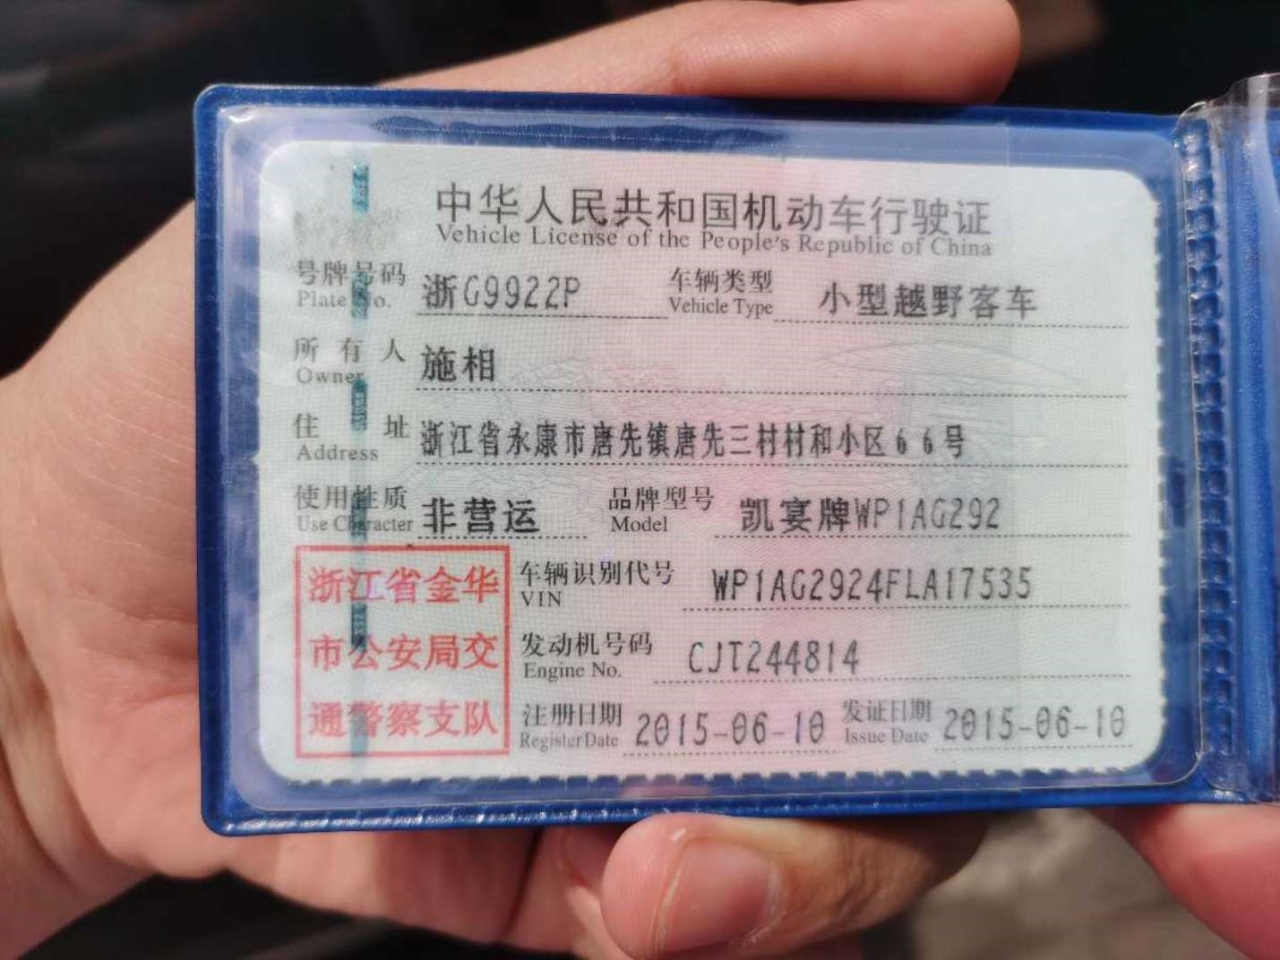 中华人民共和国机动车行驶证
Vehicle License of the People's Republic of China
号牌号码 浙G9922P 车辆类型 小型越野客车
Plate No. Vehicle Type
所有人 施相
Owner
住址 浙江省永康市唐先镇唐先三村村和小区66号
Address
使用性质 非营运 品牌型号 凯宴牌WP1AG292
Use Character Model
浙江省金华
市公安局交
通警察支队
车辆识别代号 WP1AG2924FLA17535
VIN
发动机号码 CJT244814
Engine No.
注册日期 2015-06-10 发证日期 2015-06-10
Register Date Issue Date